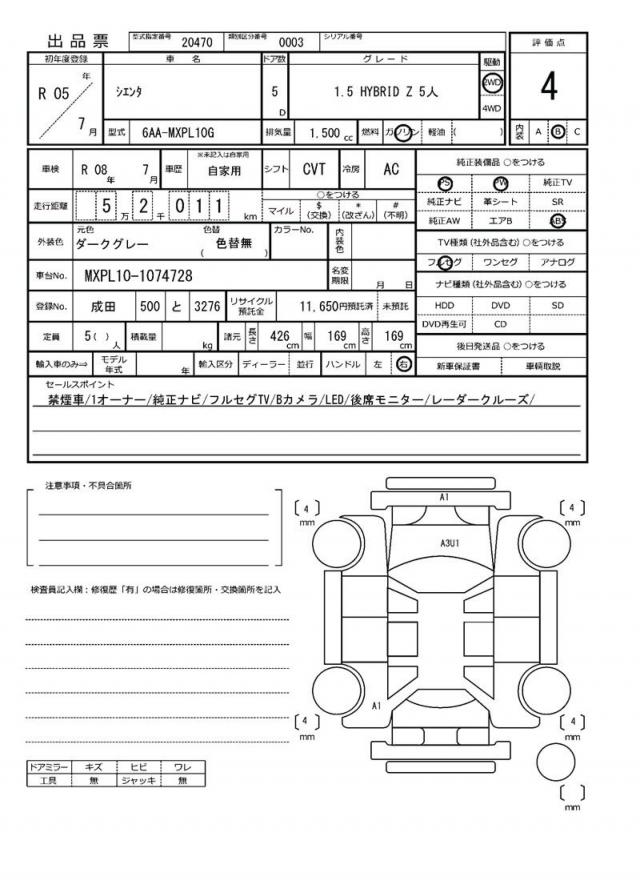 出品票 型式指定番号 20470 類別区分番号 0003 シリアル番号
評価点
4
内装 A B C
初年度登録 車名 ドア数 グレード 駆動
R 05 年 7 月
シエンタ 5 D 1.5 HYBRID Z 5人 2WD
4WD
型式 6AA-MXPL10G 排気量 1,500 cc 燃料 ガソリン 軽油 ( )
車検 R 08 年 7 月 車歴 ※未記入は自家用 自家用 シフト CVT 冷房 AC
走行距離 5 万 2 千 0 1 1 km
○をつける
マイル $ (交換) * (改ざん) # (不明)
外装色 元色 ダークグレー 色替 ( 色替無 ) カラーNo. 内装色
車台No. MXPL10-1074728 名変期限 月 日
登録No. 成田 500 と 3276 リサイクル預託金 11,650円預託済 未預託
定員 5( ) 人 積載量 kg 諸元 長さ 426 cm 幅 169 cm 高さ 169 cm
輸入車のみ⇒ モデル年式 年 輸入区分 ディーラー 並行 ハンドル 左 右
純正装備品 ○をつける
PS PW 純正TV
純正ナビ 革シート SR
純正AW エアB ABS
TV種類(社外品含む) ○をつける
フルセグ ワンセグ アナログ
ナビ種類(社外品含む) ○をつける
HDD DVD SD
DVD再生可 CD
後日発送品 ○をつける
新車保証書 車輌取説
セールスポイント
禁煙車/1オーナー/純正ナビ/フルセグTV/Bカメラ/LED/後席モニター/レーダークルーズ/
注意事項・不具合箇所
検査員記入欄：修復歴「有」の場合は修復箇所・交換箇所を記入
ドアミラー キズ ヒビ ワレ
工具 無 ジャッキ 無
A1
[ 4 ] mm
[ 4 ] mm
A3U1
A1
[ 4 ] mm
[ 4 ] mm
[ ] mm